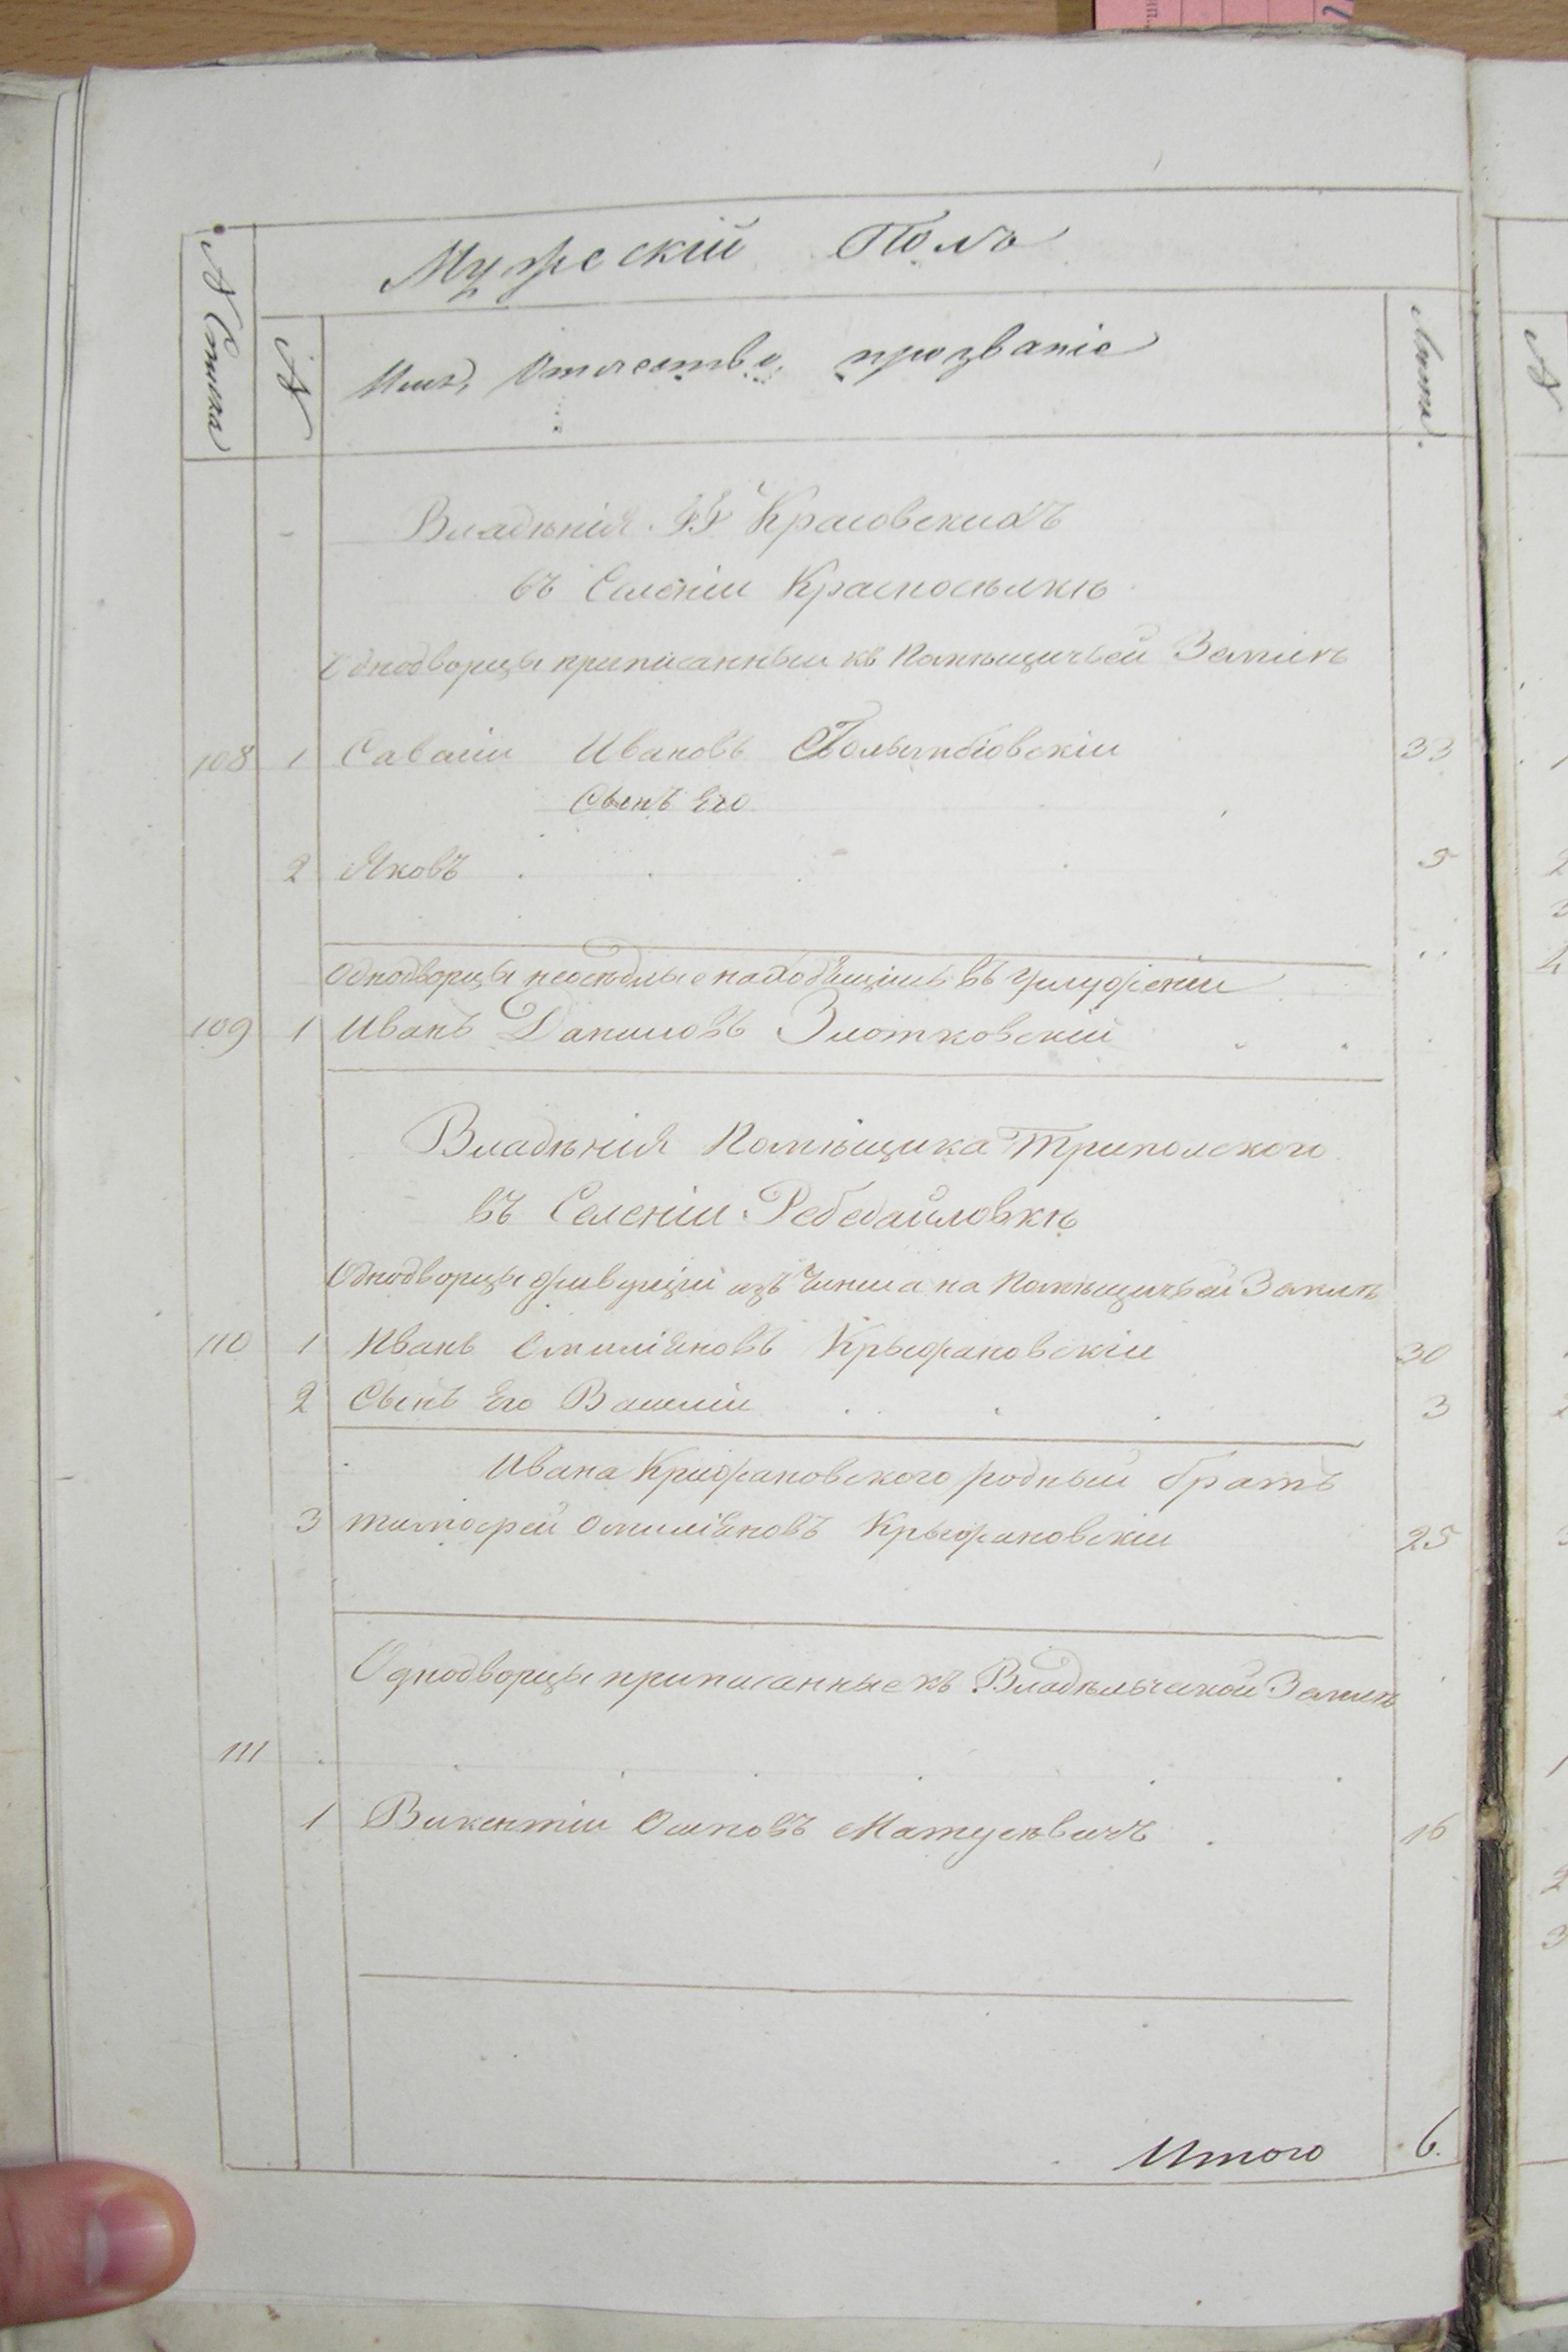 Мужескій Полъ
№ Списка
№
Имя, Отчество, прозваніе
Лета.
Владѣнія ГГ Красовскихъ
въ Селеніи Красноселкѣ
Однодворцы приписанныи къ Помѣщичьей Землѣ
108 1 Саватій Ивановъ 33
Сынъ Его
2 Яковъ 5
Однодворцы неоседлые находящіись въ Услуженіи
109 1 Иванъ Даниловъ Злотковскій
Владѣнія Помѣщика Трипольского
въ Селеніи Ребедайловкѣ
Однодворцы живущіи изъ Чинша на Помѣщичьей Землѣ
110 1 Иванъ Омиліяновъ Крыжановскій 30
2 Сынъ Его Василій 3
Ивана Крижановского родный братъ
3 тимофей Омиліяновъ Крыжановскій 25
Однодворцы приписанные къ Владѣльческой Землѣ
111
1 Викентій Осиповъ Матусѣвичъ 16
Итого 6.